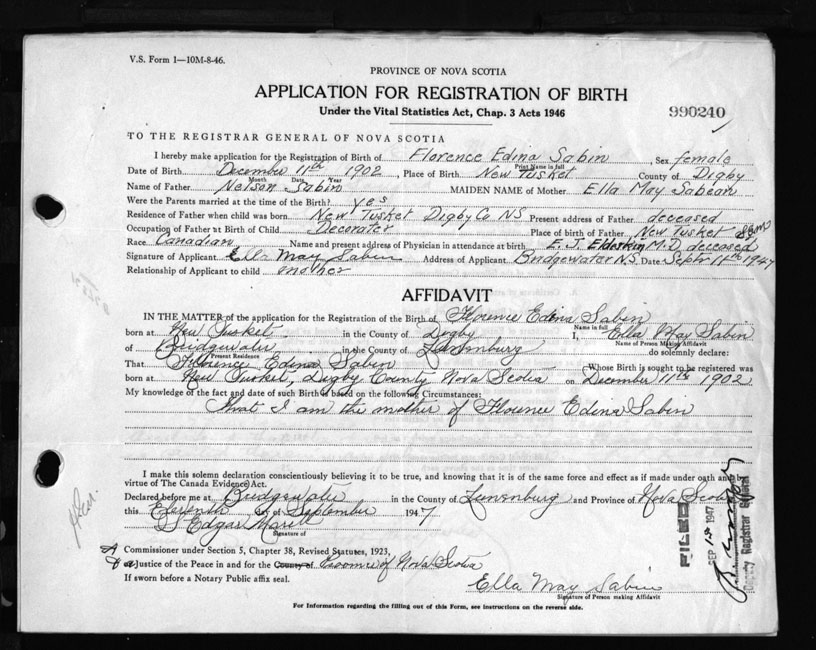 V.S. Form 1—10M-8-46.
PROVINCE OF NOVA SCOTIA
APPLICATION FOR REGISTRATION OF BIRTH
Under the Vital Statistics Act, Chap. 3 Acts 1946
990240
TO THE REGISTRAR GENERAL OF NOVA SCOTIA
I hereby make application for the Registration of Birth of Florence Edina Sabin, Sex female
Print Name in full
Date of Birth December 11th 1902, Place of Birth New Tusket County of Digby
Month Date Year
Name of Father Nelson Sabin MAIDEN NAME of Mother Ella May Sabean
Were the Parents married at the time of the Birth? yes
Residence of Father when child was born New Tusket Digby Co NS Present address of Father deceased
Occupation of Father at Birth of Child Decorater Place of birth of Father New Tusket
Race Canadian Name and present address of Physician in attendance at birth E. J. Elderkin M.D. deceased
Signature of Applicant Ella May Sabin Address of Applicant Bridgewater N.S. Date Sept 11th 1947
Relationship of Applicant to child mother
AFFIDAVIT
IN THE MATTER of the application for the Registration of the Birth of Florence Edina Sabin
Name in full
born at New Tusket in the County of Digby I, Ella May Sabin
Name of Person Making Affidavit
of Bridgewater in the County of Lunenburg do solemnly declare:
Present Residence
That Florence Edina Sabin Whose Birth is sought to be registered was
born at New Tusket, Digby County Nova Scotia on December 11th 1902
My knowledge of the fact and date of such Birth is based on the following Circumstances:
That I am the mother of Florence Edina Sabin
I make this solemn declaration conscientiously believing it to be true, and knowing that it is of the same force and effect as if made under oath and by
virtue of The Canada Evidence Act.
Declared before me at Bridgewater in the County of Lunenburg and Province of Nova Scotia
this Eleventh day of September 1947
S Edgar
Signature of
A Commissioner under Section 5, Chapter 38, Revised Statutes, 1923,
Justice of the Peace in and for the County of Province of Nova Scotia
If sworn before a Notary Public affix seal.
Ella May Sabin
Signature of Person making Affidavit
For Information regarding the filling out of this Form, see instructions on the reverse side.
FILED
SEP 1947
Deputy Registrar General